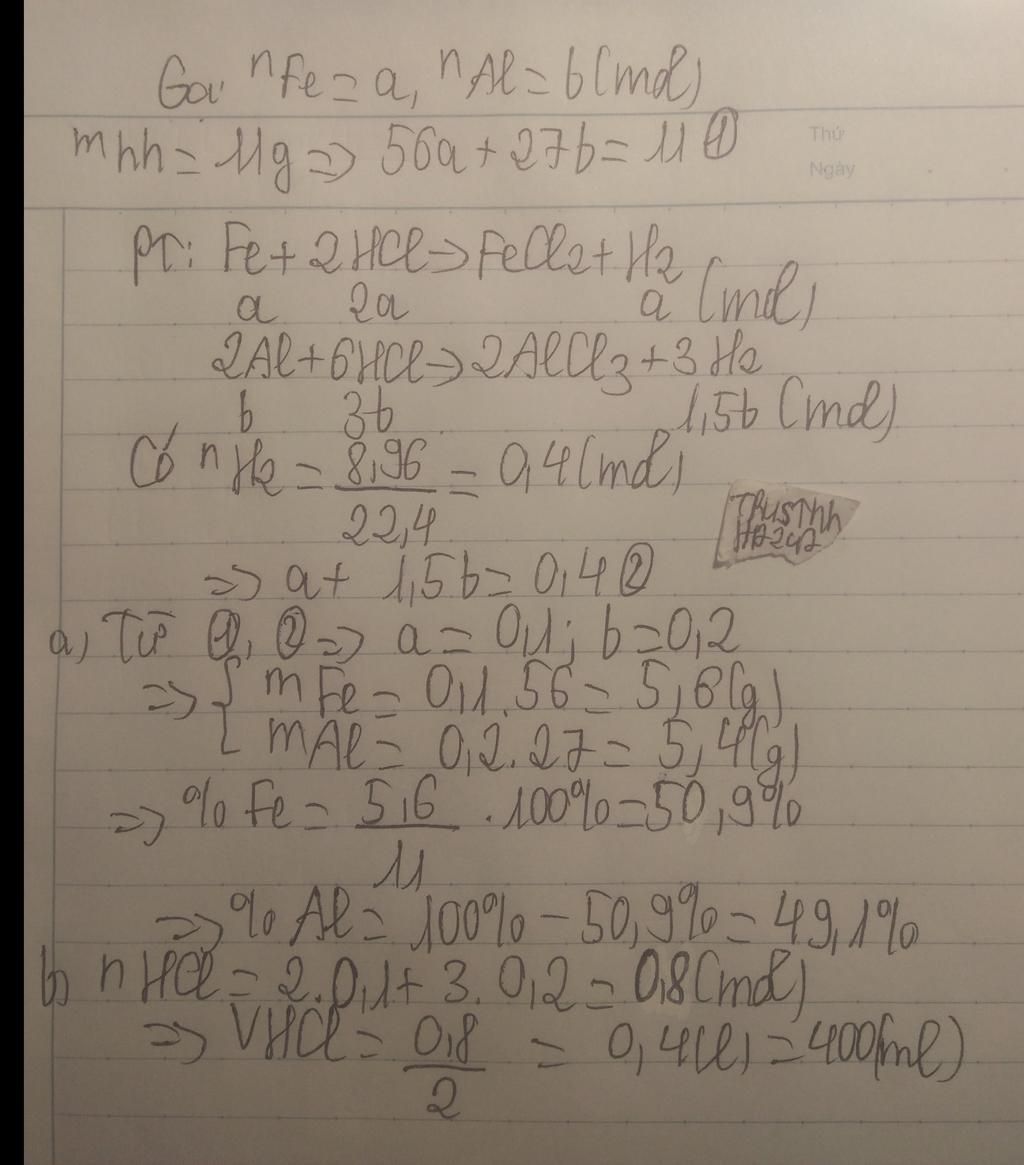 Gọi nFe = a, nAl = b (mol)
mhh = 11g => 56a + 27b = 11 ①
Thứ
Ngày
PT: Fe + 2HCl => FeCl2 + H2
a 2a a (mol)
2Al + 6HCl => 2AlCl3 + 3H2
b 3b 1,5b (mol)
Có nH2 = 8,96 / 22,4 = 0,4 (mol)
=> a + 1,5b = 0,4 ②
a) Từ ①, ② => a = 0,1; b = 0,2
=> { mFe = 0,1.56 = 5,6 (g)
mAl = 0,2.27 = 5,4 (g)
=> % Fe = 5,6 / 11 . 100% = 50,9%
=> % Al = 100% - 50,9% = 49,1%
b) nHCl = 2.0,1 + 3.0,2 = 0,8 (mol)
=> VHCl = 0,8 / 2 = 0,4 (l) = 400 (ml)